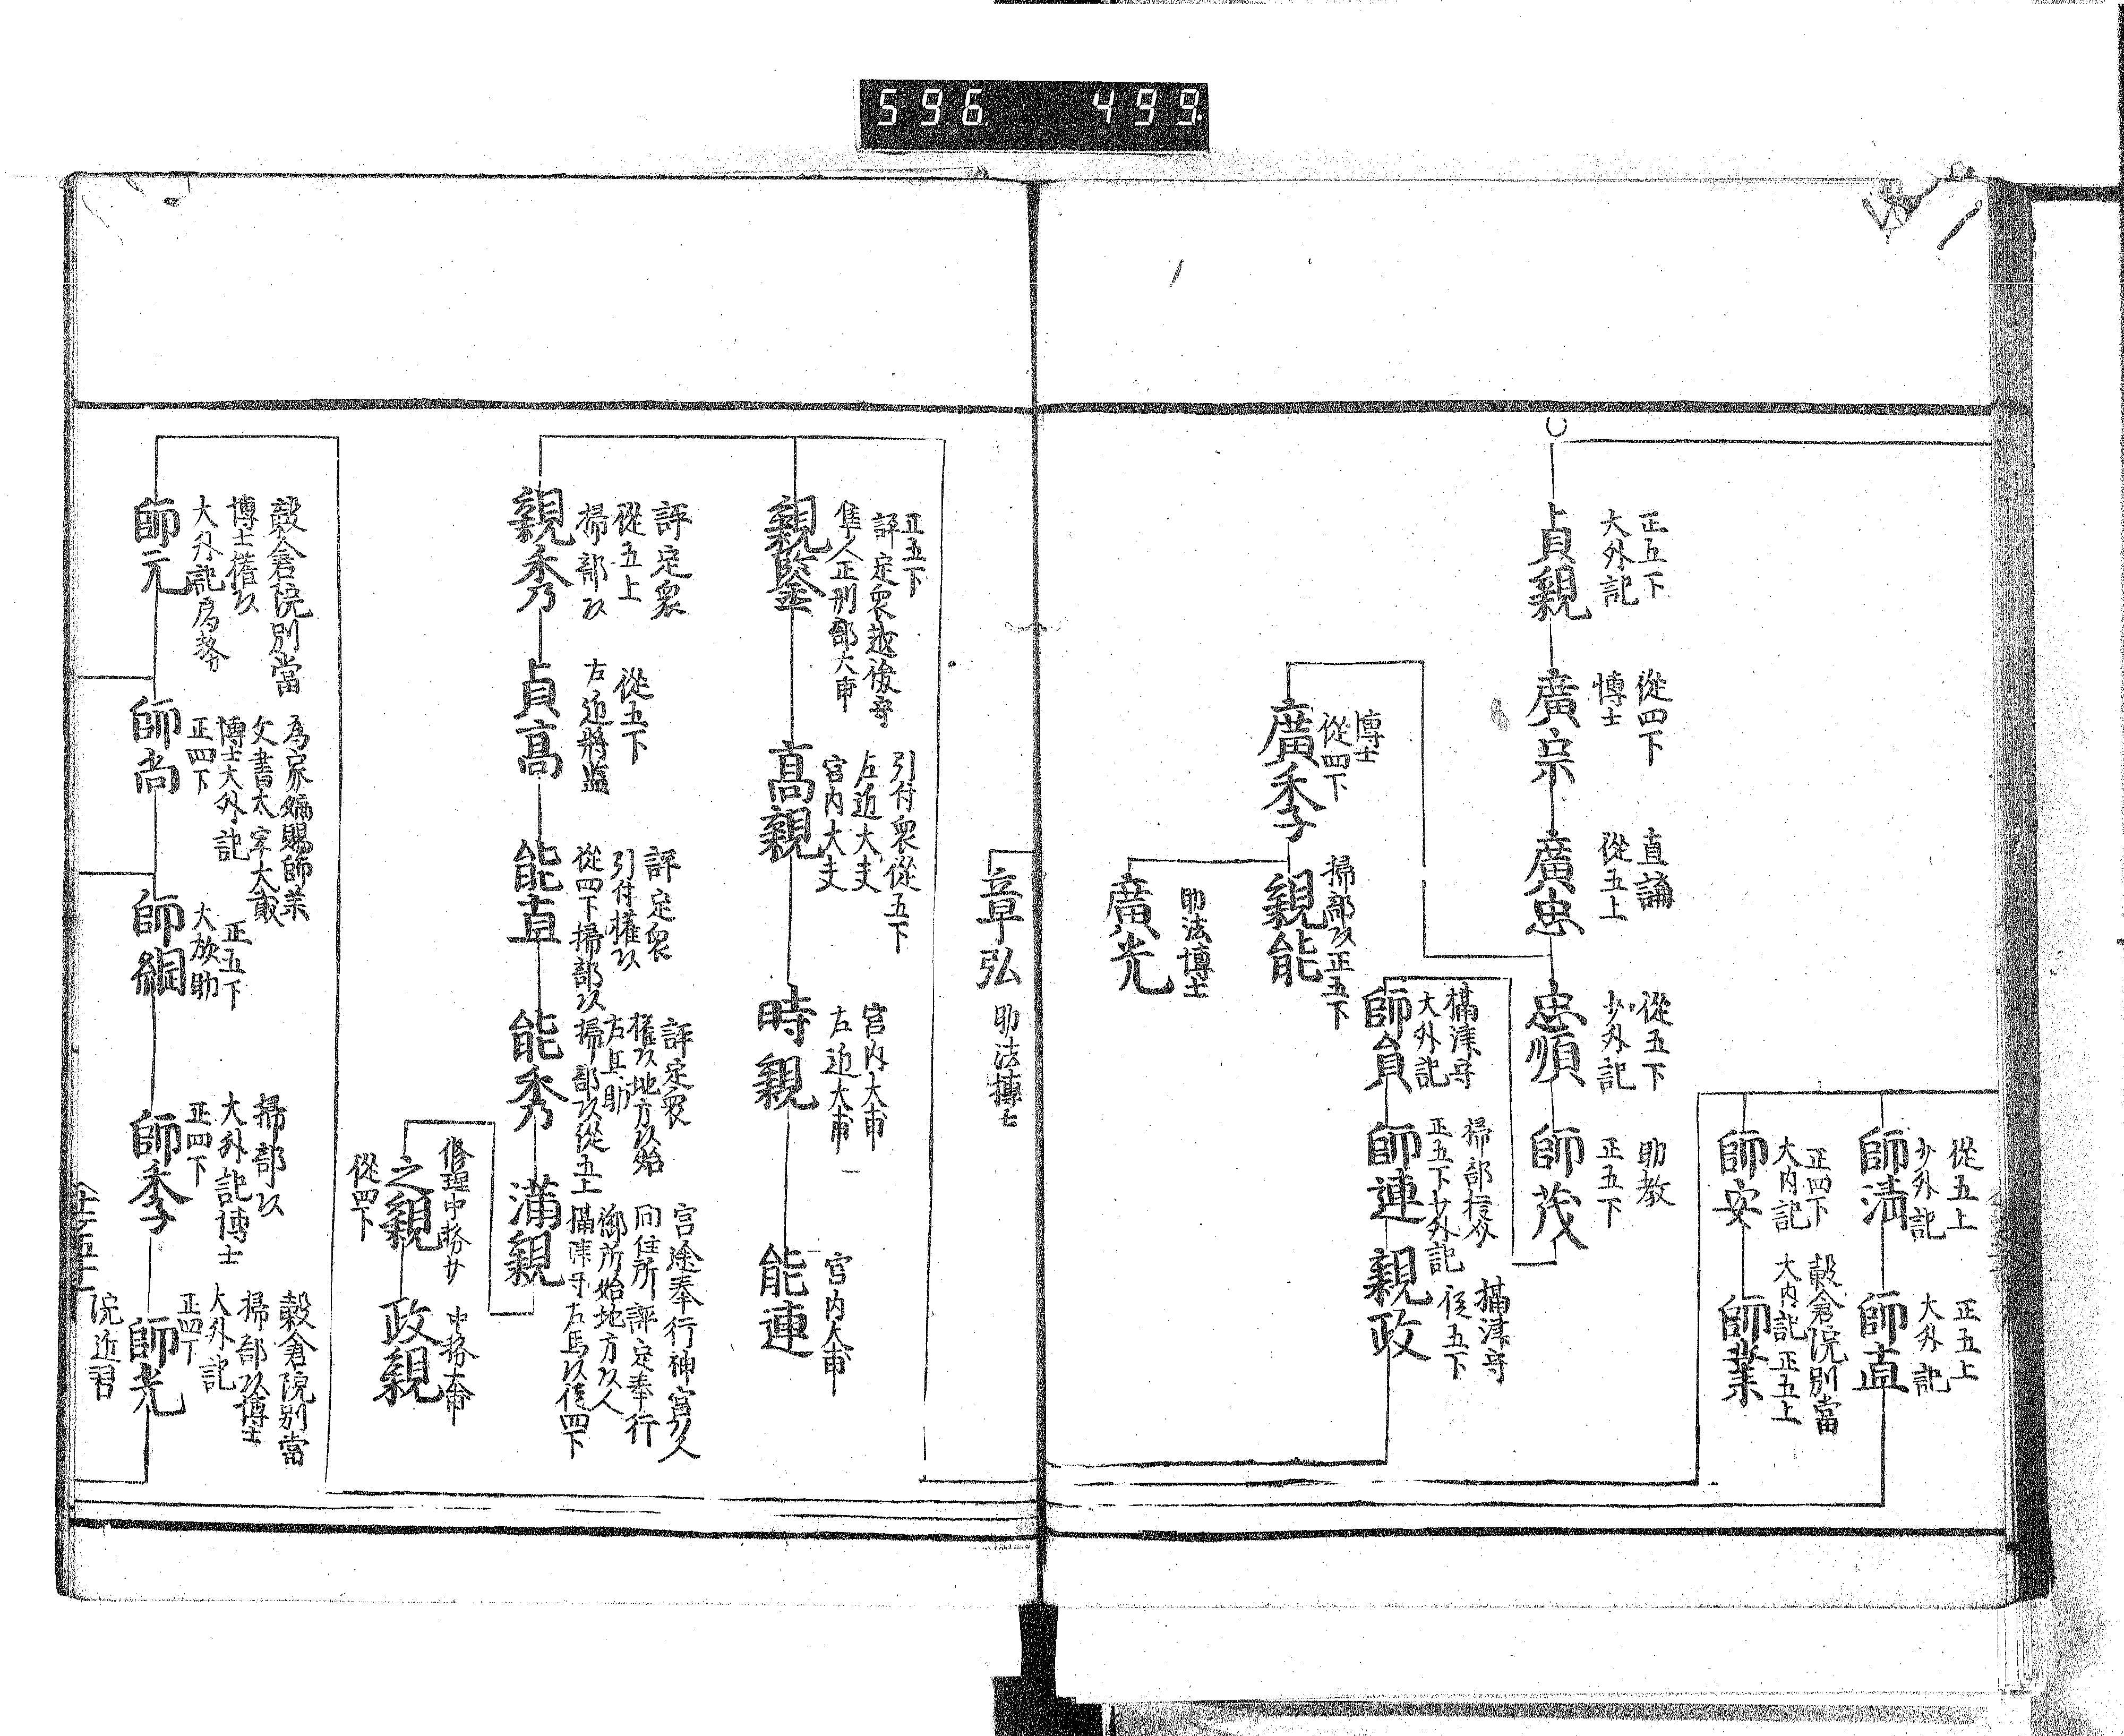 596 499
從五上
少外記
師淸
正五上
大外記
師直
正四下
大内記
師安
穀倉院別當
大内記正五上
師業
正五下
大外記
貞親
從四下
博士
廣宗
直講
從五上
廣忠
從五下
少外記
忠順
助教
正五下
師茂
攝津守
大外記
師員
掃部権
正五下少外記
師連
攝津守
從五下
親政
博士
從四下
廣季
掃部以正五下
親能
助法博士
廣光
章弘
助法博士
正五下
評定衆越後守
隼人正刑部大甫
親鑒
引付衆從五下
左近大夫
宮内大夫
高親
宮内大甫
左近大甫
時親
宮内大甫
能連
評定衆
從五上
掃部以
親秀
從五下
左近將監
貞高
評定衆
引付權以
從四下掃部以
能直
評定衆
權以地方以始
左兵助
掃部以從五上
能秀
宮途奉行神宮以人
同住所評定奉行
御所始地方以人
攝津守左馬以從四下
滿親
修理中務少
之親
從四下
中務大甫
政親
穀倉院別當
博士權以
大外記爲務
師元
為家嫡賜師業
文書太宰大貳
博士大外記
正四下
師尚
正五下
大放助
師綱
掃部以
大外記博士
正四下
師季
穀倉院別當
掃部以博士
大外記
正四下
師光
院近習